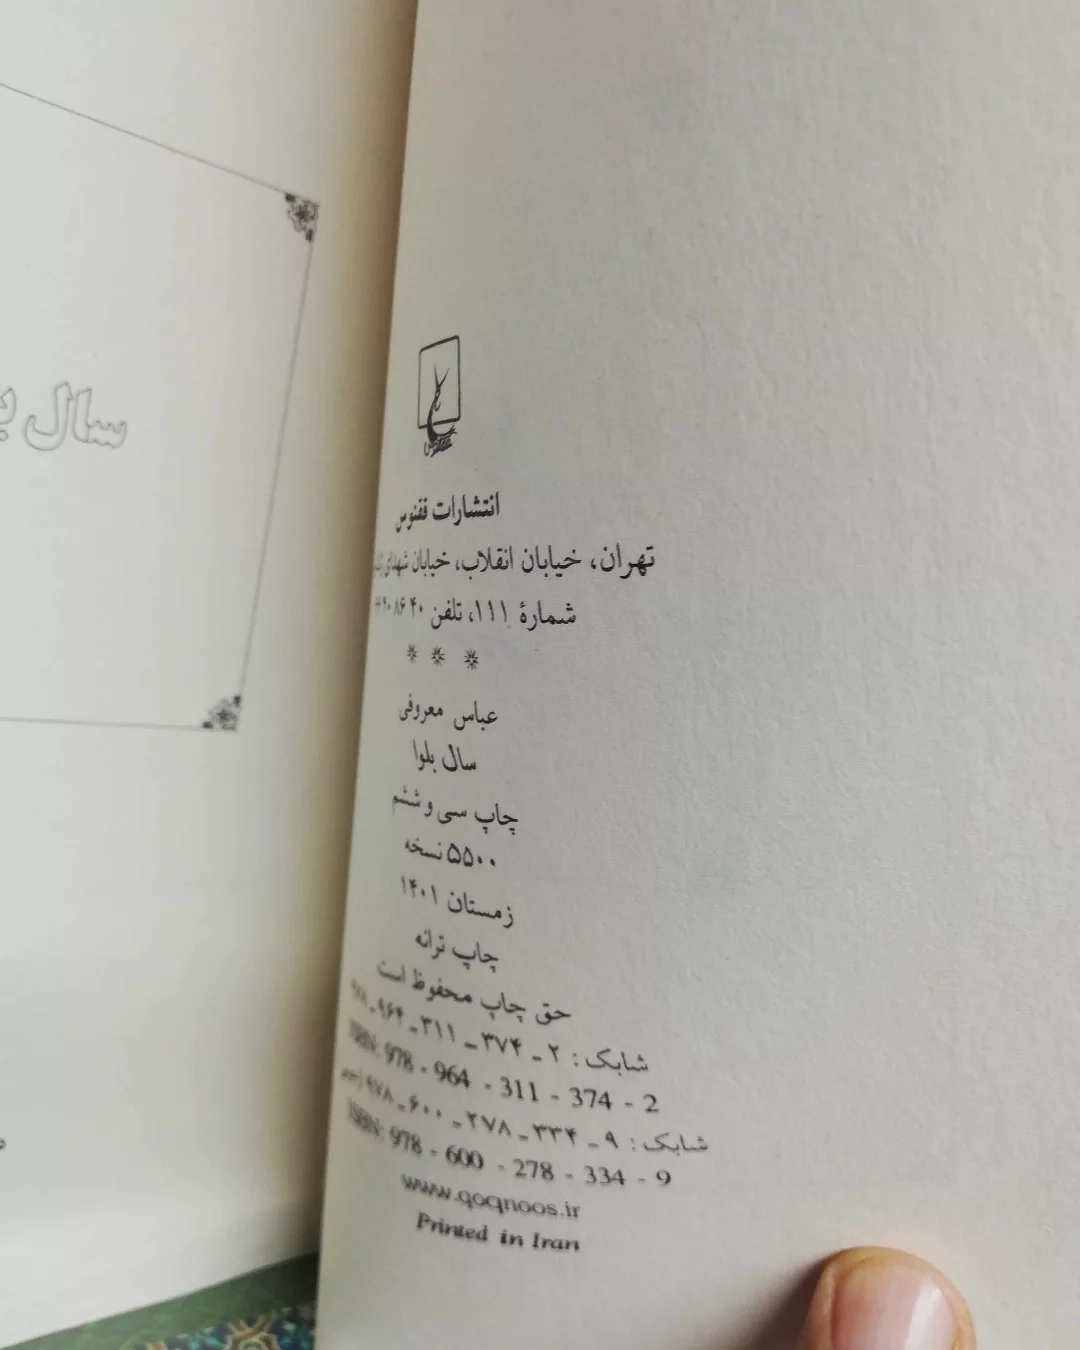 سال
ققنوس
انتشارات ققنوس
تهران، خیابان انقلاب، خیابان شهدای
شمارهٔ ۱۱۱، تلفن ۴۰ ۸۶
* * *
عباس معروفی
سال بلوا
چاپ سی و ششم
۵۵۰۰ نسخه
زمستان ۱۴۰۱
چاپ ترانه
حق چاپ محفوظ است
شابک: ۲ ـ ۳۷۴ ـ ۳۱۱ ـ ۹۶۴ ـ ۹۷۸
ISBN: 978 - 964 - 311 - 374 - 2
شابک: ۹ ـ ۳۳۴ ـ ۲۷۸ ـ ۶۰۰ ـ ۹۷۸
ISBN: 978 - 600 - 278 - 334 - 9
www.qoqnoos.ir
Printed in Iran